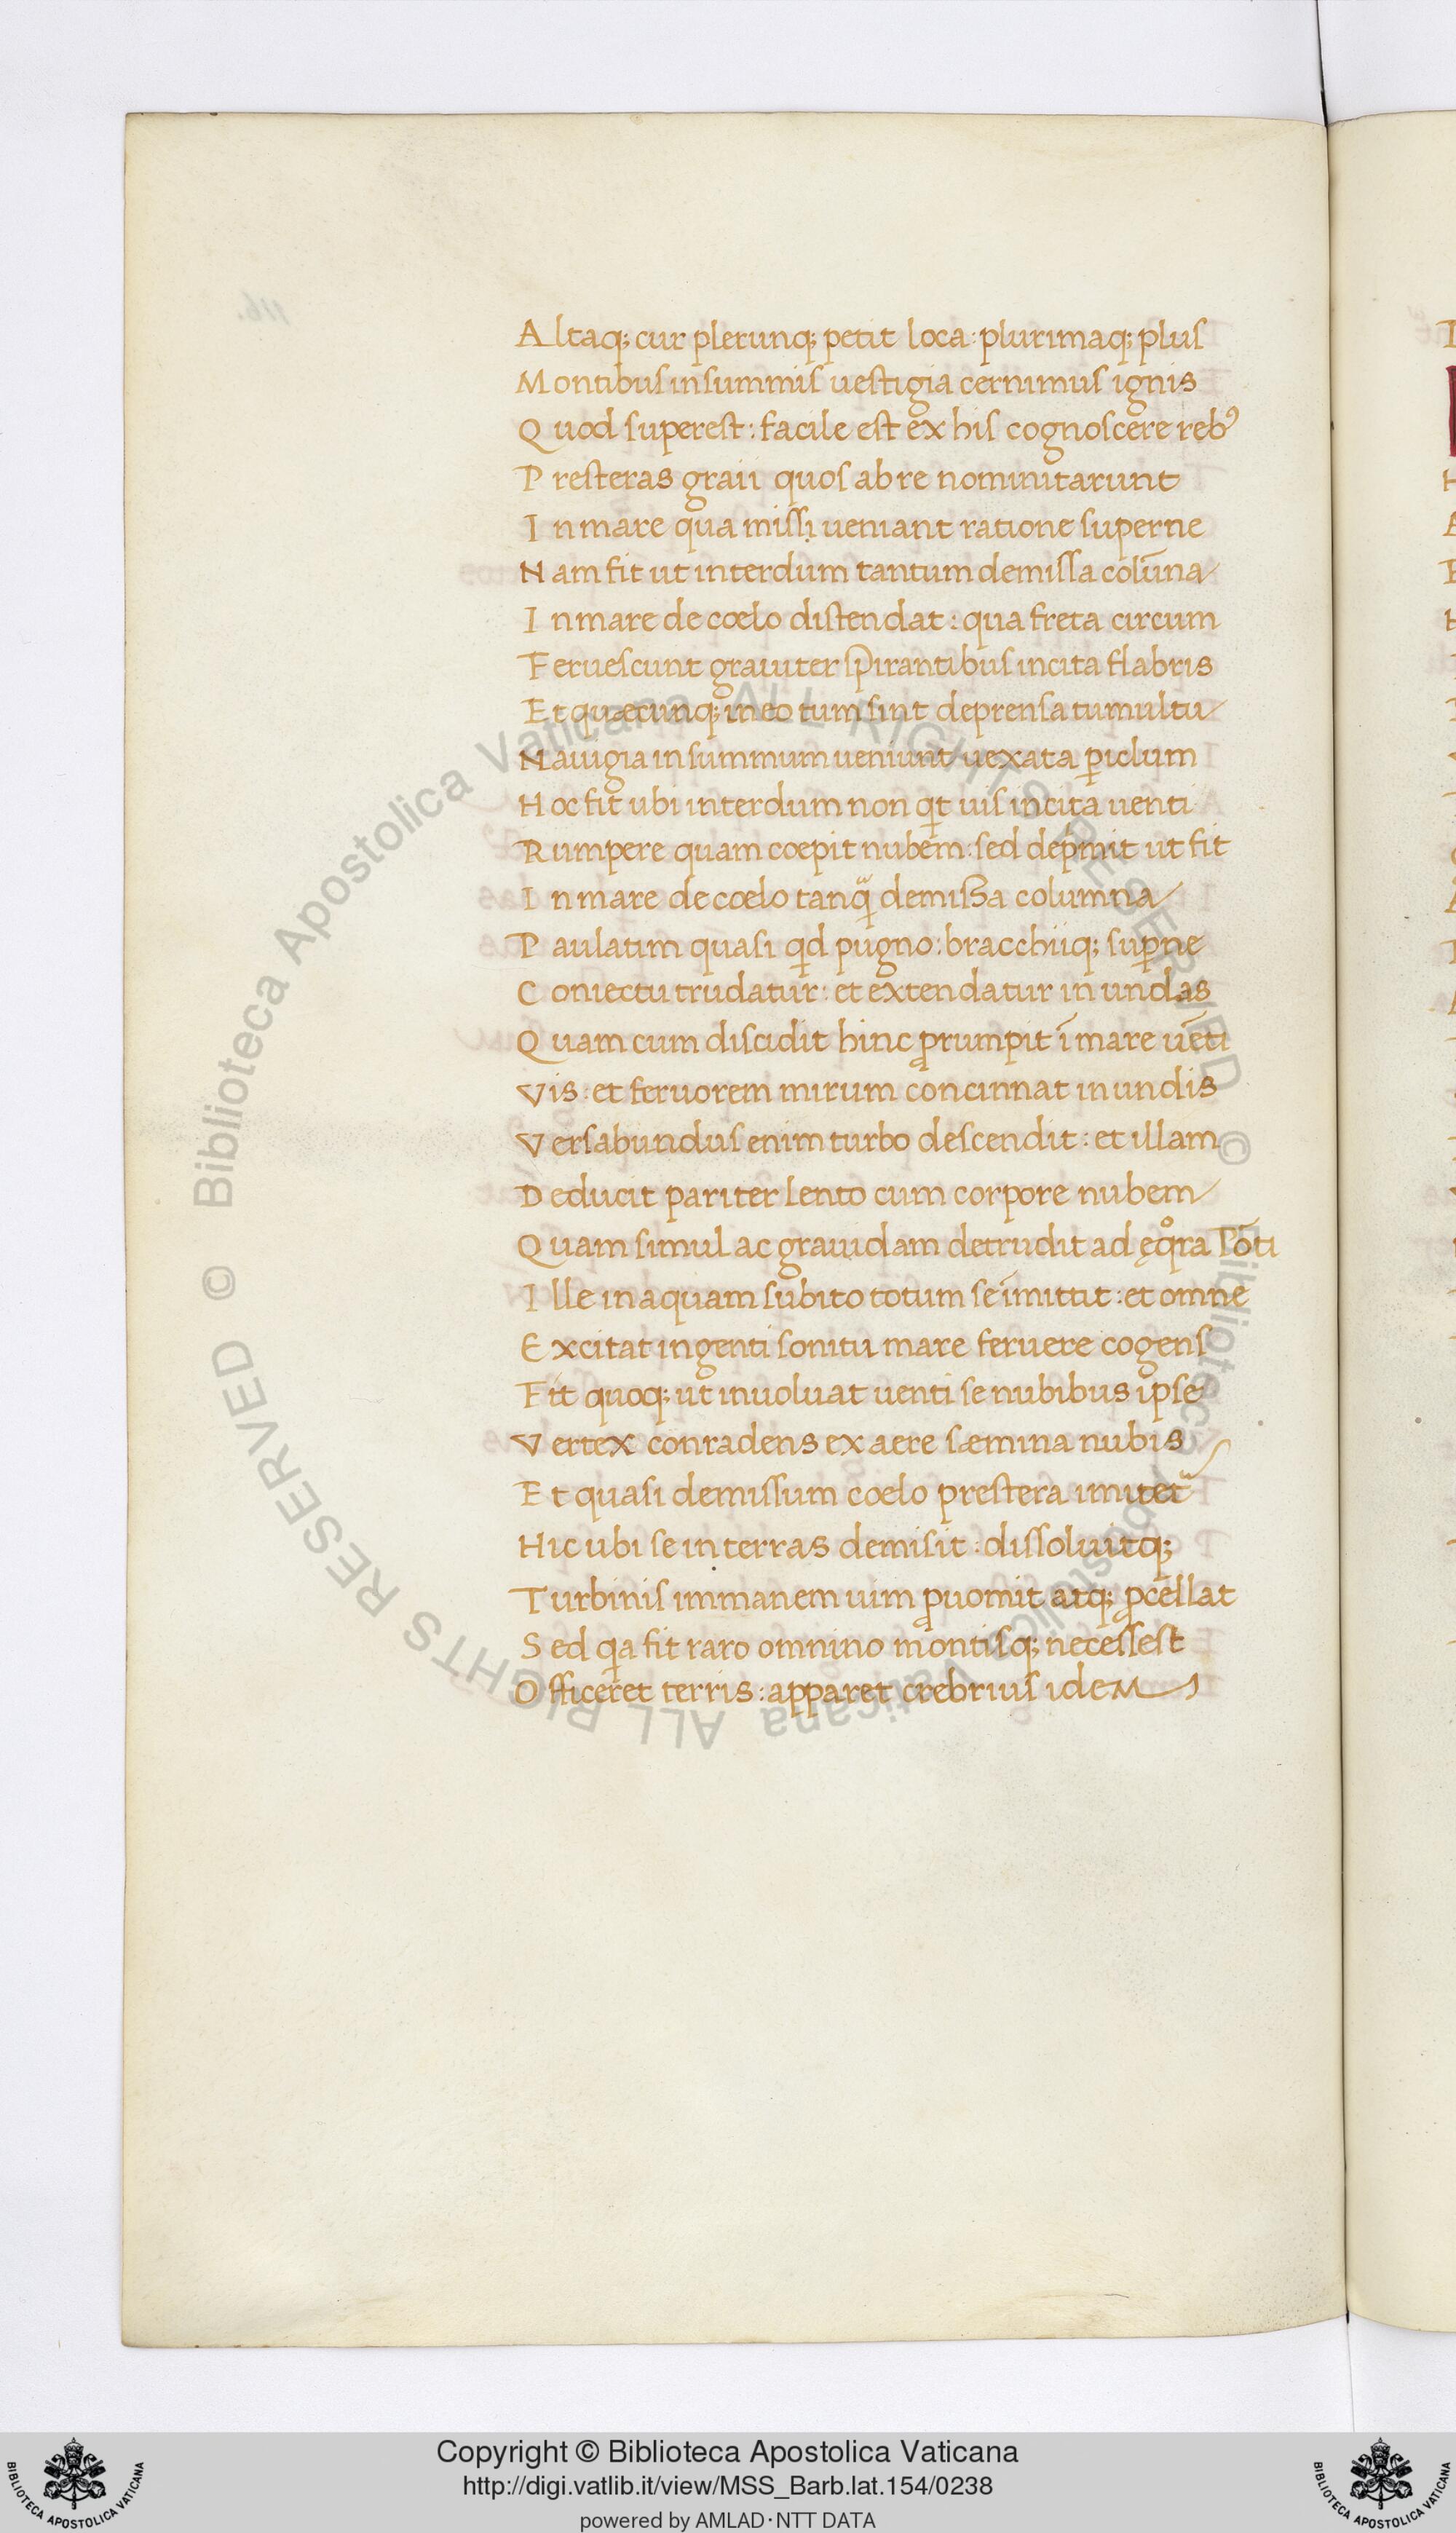 Altaq; cur plerunq; petit loca: plurimaq; plus
Montibus in summis uestigia cernimus ignis
Quod superest: facile est ex his cognoscere rebꝰ
Presteras graii quos ab re nominitarunt
In mare qua missi ueniant ratione superne
Nam fit ut interdum tantum demissa colūna
In mare de coelo distendat: qua freta circum
Feruescunt grauiter spirantibus incita flabris
Et quæcunq; in eo tum sint deprensa tumultu
Nauigia in summum ueniunt uexata ꝑiclum
Hoc fit ubi interdum non qͥt uis incita uenti
Rumpere quam coepit nubem: sed depͥmit ut fit
In mare de coelo tanꝙᷓ demissa columna
Paulatim quasi qͥd pugno: bracchiiq; suꝑne
Coniectu trudatur: et extendatur in undas
Quam cum discidit hinc ꝓrumpit ī mare uēti
Vis: et feruorem mirum concinnat in undis
Versabundus enim turbo descendit: et illam
Deducit pariter lento cum corpore nubem
Quam simul ac grauidam detrudit ad ęqͦra Pōti
Ille in aquam subito totum se īmittit: et omne
Excitat ingenti sonitu mare feruere cogens
Fit quoq; ut inuoluat uenti se nubibus ipse
Vertex conradens ex aere sæmina nubis
Et quasi demissum coelo prestera imitetᷣ
Hic ubi se in terras demisit: dissoluitq;
Turbinis immanem uim ꝓuomit atq; ꝓcellat
Sed qa fit raro omnino montisq; necessest
Officeret terris: apparet crebrius ideM
116.
© Biblioteca Apostolica Vaticana ALL RIGHTS RESERVED © Biblioteca Apostolica Vaticana ALL RIGHTS RESERVED
Copyright © Biblioteca Apostolica Vaticana
http://digi.vatlib.it/view/MSS_Barb.lat.154/0238
powered by AMLAD·NTT DATA
BIBLIOTECA APOSTOLICA VATICANA
BIBLIOTECA APOSTOLICA VATICANA